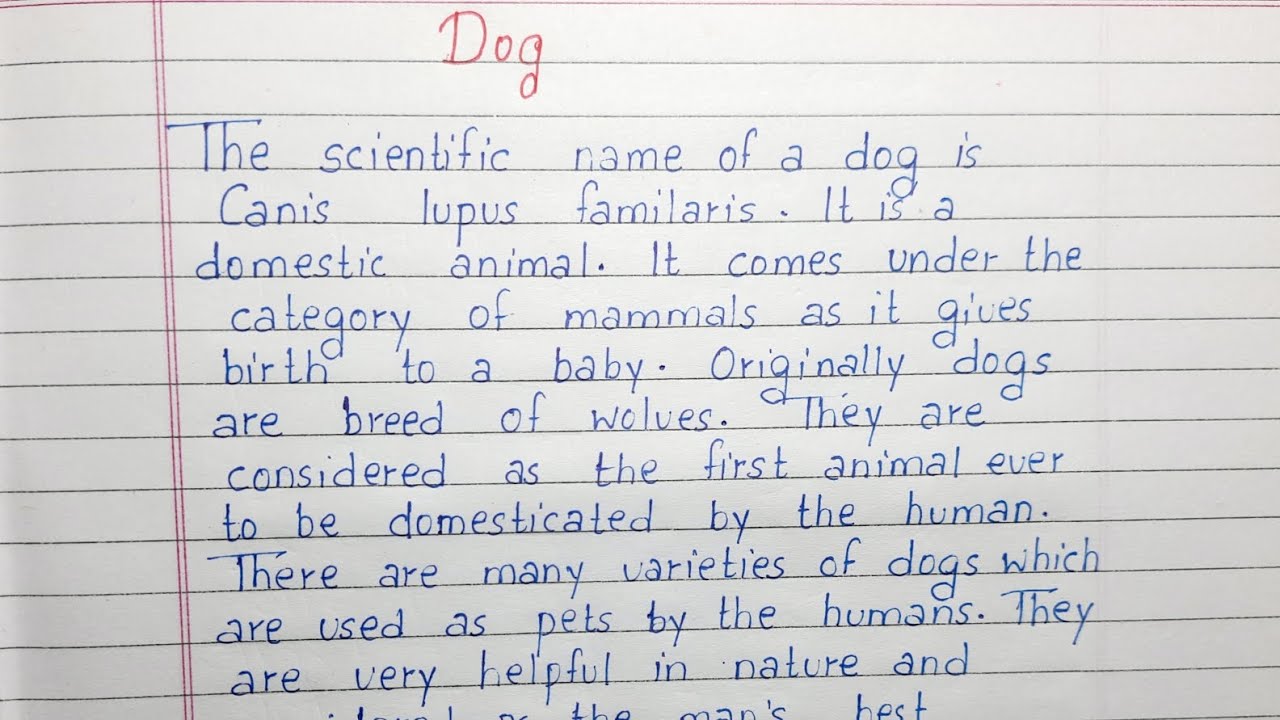 Dog
The scientific name of a dog is
Canis lupus familaris. It is a
domestic animal. It comes under the
category of mammals as it gives
birth to a baby. Originally dogs
are breed of wolves. They are
considered as the first animal ever
to be domesticated by the human.
There are many varieties of dogs which
are used as pets by the humans. They
are very helpful in nature and
as the man's best